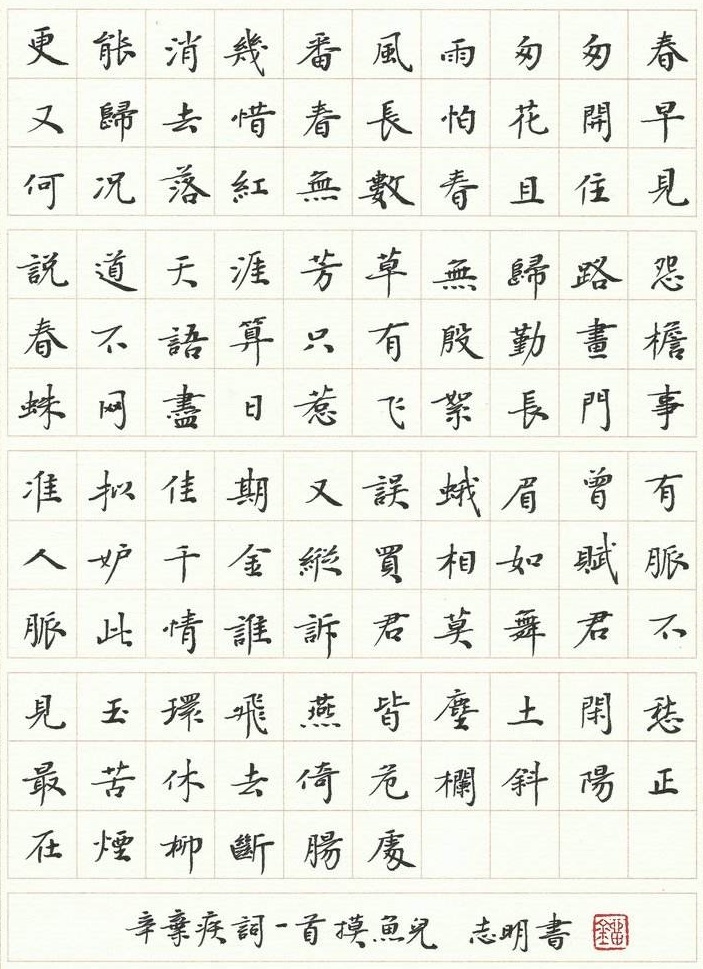 更能消幾番風雨匆匆春
又歸去惜春長怕花開早
何况落紅無數春且住見
説道天涯芳草無歸路怨
春不語算只有殷勤畫檐
蛛网盡日惹飞絮長門事
准拟佳期又誤蛾眉曾有
人妒千金縱買相如賦脈
脈此情誰訴君莫舞君不
見玉環飛燕皆塵土閑愁
最苦休去倚危欄斜陽正
在煙柳斷腸處
辛棄疾詞一首摸魚兒 志明書